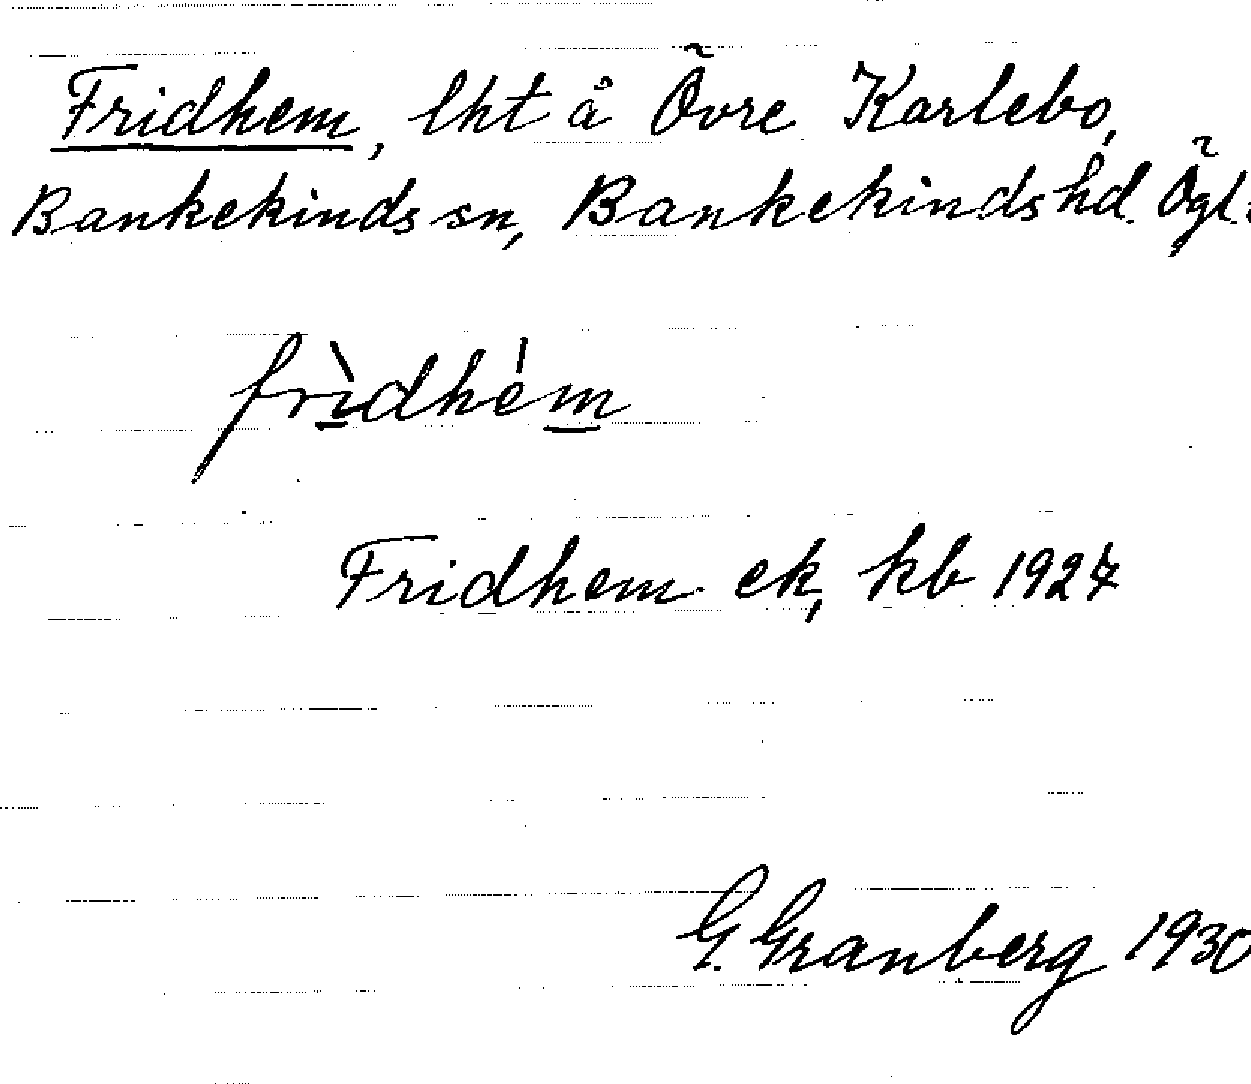 Fridhem, lht å Övre Karlebo,
Bankekinds sn, Bankekinds hd. Ögl.
frìdhém
Fridhem ek, kb 1927
G. Granberg 1930